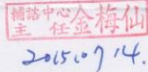 輔諮中心
主任金梅仙
2015.07.14.